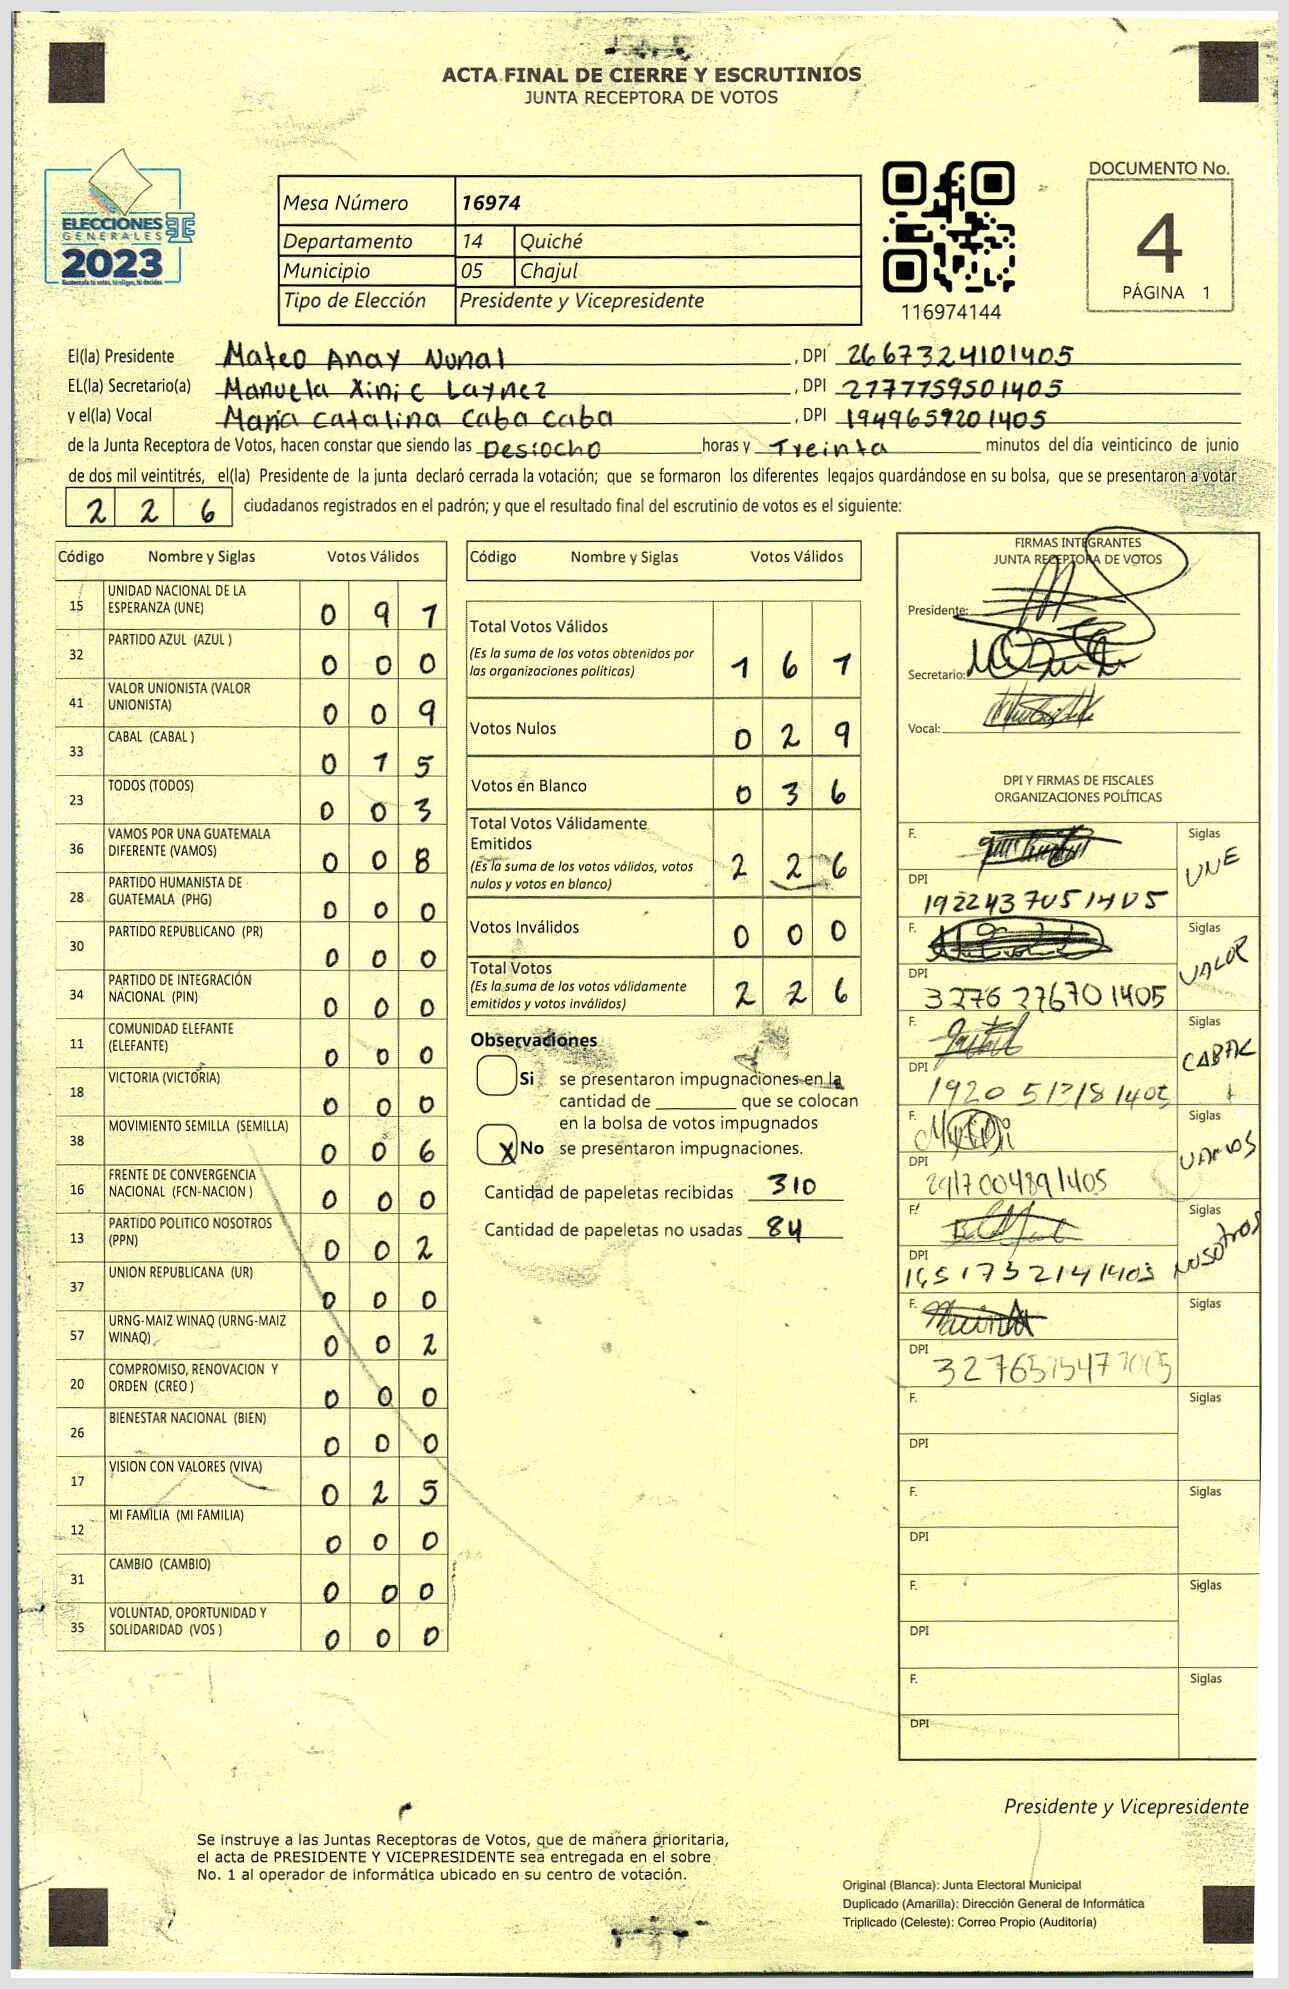 ACTA FINAL DE CIERRE Y ESCRUTINIOS
JUNTA RECEPTORA DE VOTOS
ELECCIONES
GENERALES
2023
Mesa Número 16974
Departamento 14 Quiché
Municipio 05 Chajul
Tipo de Elección Presidente y Vicepresidente
116974144
DOCUMENTO No.
4
PÁGINA 1
El(la) Presidente Mateo Anay Nunal , DPI 2667324101405
EL(la) Secretario(a) Manuela Xinic Laynez , DPI 2777759501405
y el(la) Vocal María Catalina Caba Caba , DPI 1949659201405
de la Junta Receptora de Votos, hacen constar que siendo las Desiocho horas y Treinta minutos del día veinticinco de junio
de dos mil veintitrés, el(la) Presidente de la junta declaró cerrada la votación; que se formaron los diferentes legajos guardándose en su bolsa, que se presentaron a votar
226 ciudadanos registrados en el padrón; y que el resultado final del escrutinio de votos es el siguiente:
Código Nombre y Siglas Votos Válidos
15 UNIDAD NACIONAL DE LA ESPERANZA (UNE) 0 9 7
32 PARTIDO AZUL (AZUL ) 0 0 0
41 VALOR UNIONISTA (VALOR UNIONISTA) 0 0 9
33 CABAL (CABAL ) 0 1 5
23 TODOS (TODOS) 0 0 3
36 VAMOS POR UNA GUATEMALA DIFERENTE (VAMOS) 0 0 8
28 PARTIDO HUMANISTA DE GUATEMALA (PHG) 0 0 0
30 PARTIDO REPUBLICANO (PR) 0 0 0
34 PARTIDO DE INTEGRACIÓN NACIONAL (PIN) 0 0 0
11 COMUNIDAD ELEFANTE (ELEFANTE) 0 0 0
18 VICTORIA (VICTORIA) 0 0 0
38 MOVIMIENTO SEMILLA (SEMILLA) 0 0 6
16 FRENTE DE CONVERGENCIA NACIONAL (FCN-NACION ) 0 0 0
13 PARTIDO POLITICO NOSOTROS (PPN) 0 0 2
37 UNION REPUBLICANA (UR) 0 0 0
57 URNG-MAIZ WINAQ (URNG-MAIZ WINAQ) 0 0 2
20 COMPROMISO, RENOVACION Y ORDEN (CREO ) 0 0 0
26 BIENESTAR NACIONAL (BIEN) 0 0 0
17 VISION CON VALORES (VIVA) 0 2 5
12 MI FAMILIA (MI FAMILIA) 0 0 0
31 CAMBIO (CAMBIO) 0 0 0
35 VOLUNTAD, OPORTUNIDAD Y SOLIDARIDAD (VOS ) 0 0 0
Código Nombre y Siglas Votos Válidos
Total Votos Válidos 1 6 1
(Es la suma de los votos obtenidos por
las organizaciones políticas)
Votos Nulos 0 2 9
Votos en Blanco 0 3 6
Total Votos Válidamente
Emitidos 2 2 6
(Es la suma de los votos válidos, votos
nulos y votos en blanco)
Votos Inválidos 0 0 0
Total Votos 2 2 6
(Es la suma de los votos válidamente
emitidos y votos inválidos)
Observaciones
Si se presentaron impugnaciones en la
cantidad de ________ que se colocan
en la bolsa de votos impugnados
X No se presentaron impugnaciones.
Cantidad de papeletas recibidas 310
Cantidad de papeletas no usadas 84
FIRMAS INTEGRANTES
JUNTA RECEPTORA DE VOTOS
Presidente:
Secretario:
Vocal:
DPI Y FIRMAS DE FISCALES
ORGANIZACIONES POLÍTICAS
F. Siglas UNE
DPI 1922437051405
F. Siglas VALOR
DPI 3276276701405
F. Siglas
DPI
F. Siglas VAMOS
DPI 2917004891405
F. Siglas NOSOTROS
DPI
F. Siglas
DPI
F. Siglas
DPI
F. Siglas
DPI
F. Siglas
DPI
F. Siglas
DPI
Presidente y Vicepresidente
Se instruye a las Juntas Receptoras de Votos, que de manera prioritaria,
el acta de PRESIDENTE Y VICEPRESIDENTE sea entregada en el sobre
No. 1 al operador de informática ubicado en su centro de votación.
Original (Blanca): Junta Electoral Municipal
Duplicado (Amarilla): Dirección General de Informática
Triplicado (Celeste): Correo Propio (Auditoría)